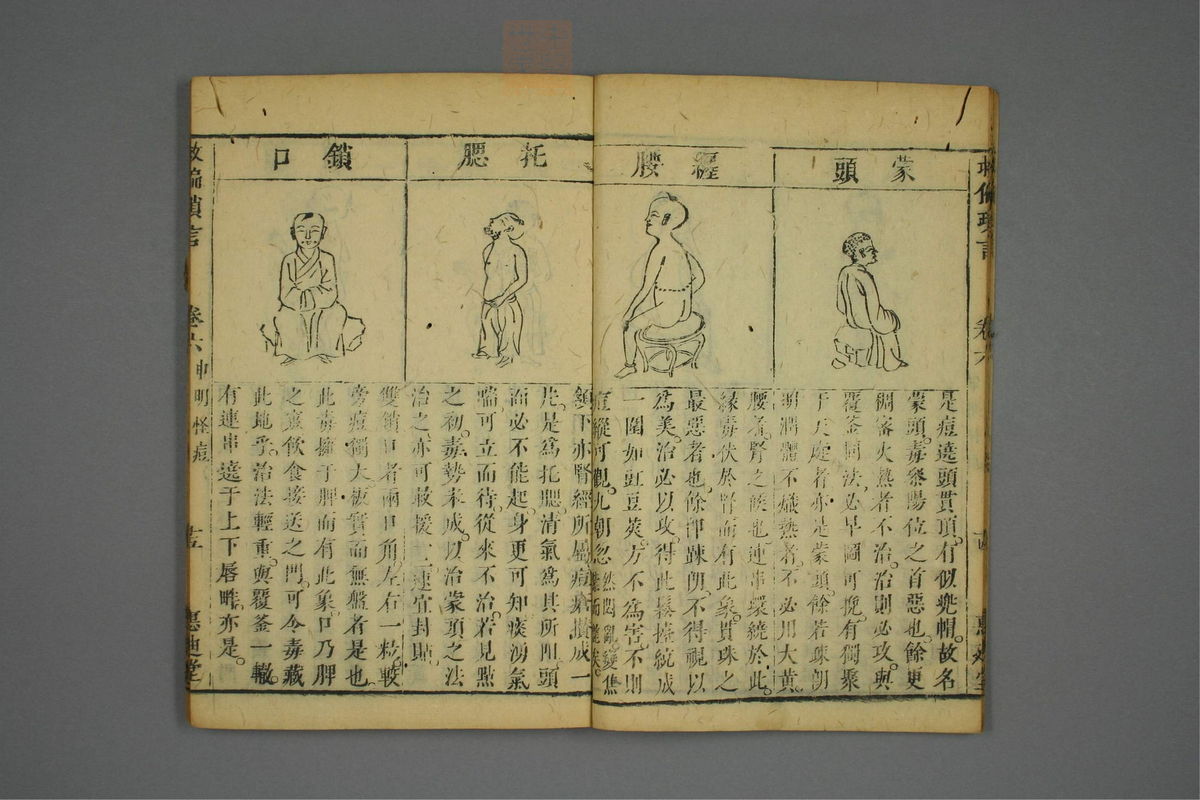 蒙頭
是痘遶頭貫頂。有似兠帽。故名
蒙頭。毒參陽位之首惡也。餘更
稠密火熱者不治。治則必攻。與
覆釜同法。必早圖可挽。有獨聚
于天庭者亦是蒙頭。餘若疎朗
明潤體不熾熱者。不必用大黄。
纏腰
腰者。腎之候也。連串環繞於此。
緣毒伏於腎而有此象。貫珠之
最惡者也。餘即疎朗。不得視以
為美。治必以攻。得此鬆擡統成
一圍如豇豆莢。方不為害。不則
縱可觀。九朝忽然悶亂。變焦
托腮
鎖下亦腎經所屬。痘瘡攢成一
片。是為托腮。清氣為其所阻。頭
治必不能起。身更可知。痰湧氣
喘可立而待。從來不治。若見點
之初。毒勢未成。以治蒙頭之法
治之。亦可救援一二。速宜封貼。
鎖口
雙鎖口者。兩口角。左右一粒。較
旁痘獨大板實而無盤者是也。
此毒擁于脾而有此象。口乃脾
之竅。飲食接送之門。可令毒藏
此地乎。治法輕重。與覆釜一轍。
有連串遶于上下唇畔。亦是。
卷六 神明怪痘
十五
惠迪堂